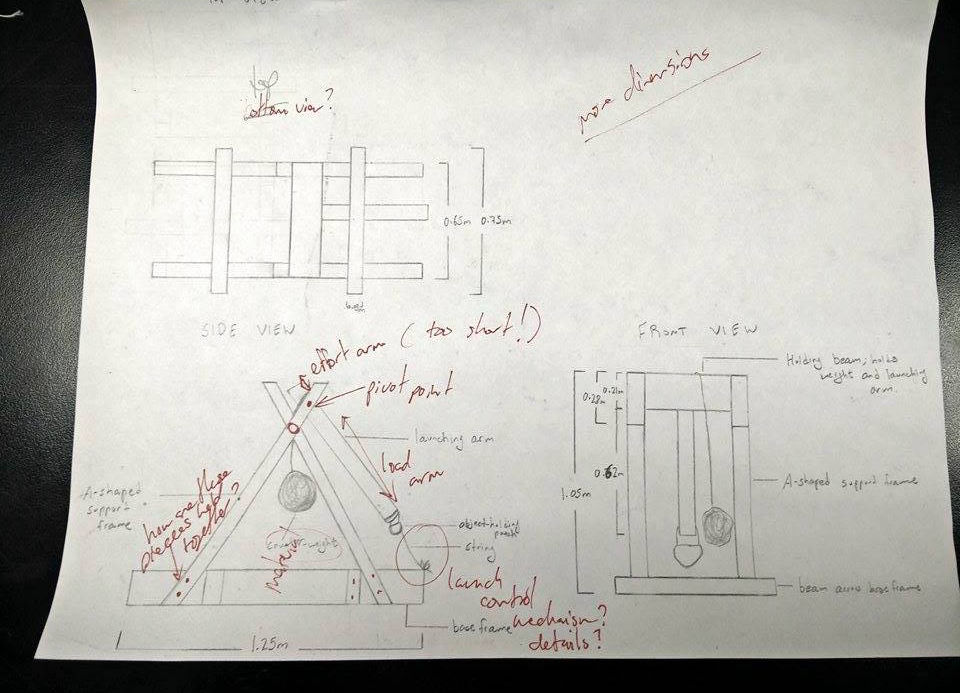 top
bottom view?
more dimensions
0.65m
0.75m
SIDE VIEW
effort arm (too short!)
pivot point
launching arm
load
arm
A-shaped
support
frame
how are these
pieces held
together?
counter-weight
material?
object-holding
pouch
string
launch
control
mechanism?
details?
base frame
1.25m
FRONT VIEW
Holding beam; holds
weight and launching
arm.
0.21m
0.28m
0.62m
1.05m
A-shaped support frame
beam across base frame